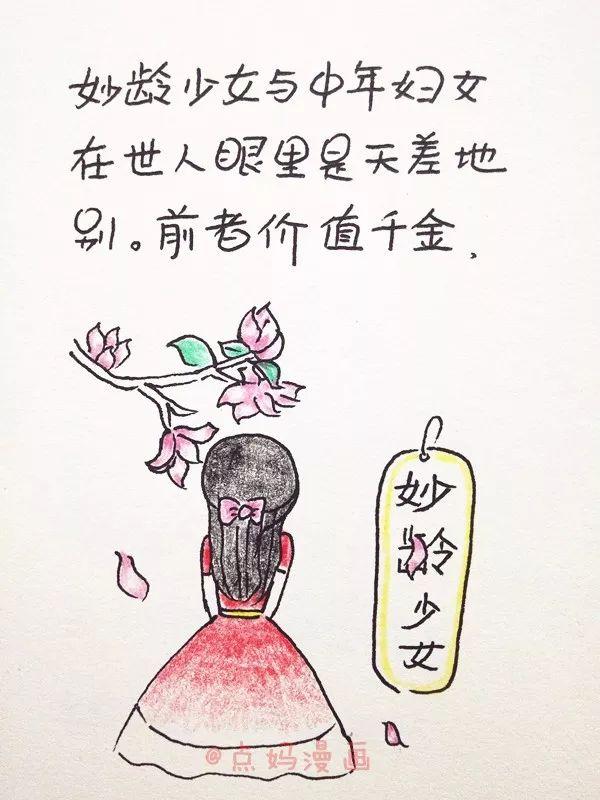 妙龄少女与中年妇女
在世人眼里是天差地
别。前者价值千金,
妙龄少女
@点妈漫画